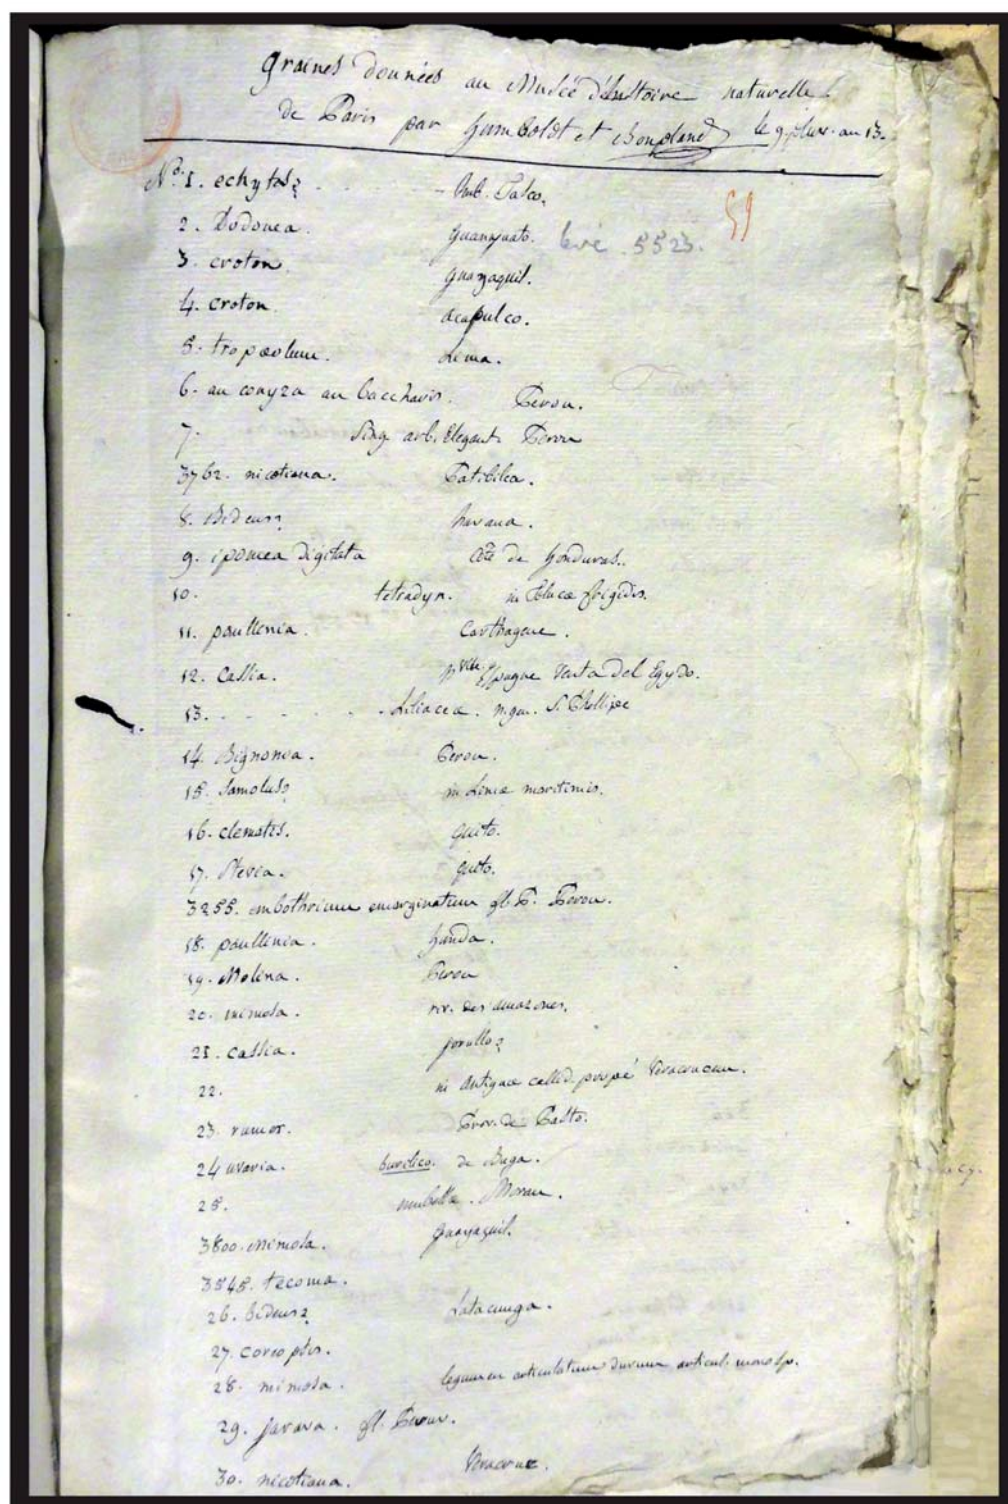 Graines données au Musée d'histoire naturelle
de Paris par humboldt et bonpland le 9 pluv. an 13.
59
N.º 1. echytes? - - Imb. Pasco.
2. Dodonea. guanajuato. 5523.
3. croton guayaquil.
4. croton acapulco.
5. tropæolum. Lima.
6. an conyza an baccharis. Perou.
7. Sing. arb. Elegant. Perou
3762. nicotiana. Pativilca.
8. Bidens? havana.
9. ipomea digitata Côte de honduras.
10. tetradyn. in Tolucæ frigidis.
11. paullinia. Carthagene.
12. Cassia. N.velle Espagne Venta del Egydo.
13. - - - - - Liliaceæ. n. gen. S. Phellipe
14. Bignonia. Perou.
15. Samolus? in Limæ maritimis.
16. clematis. Quito.
17. Stevia. quito.
3255. embothrium emarginatum fl. P. Perou.
18. paullinia. honda.
19. Molina. Perou
20. mimosa. riv. des amazones.
21. cassia. jorullo?
22. in Antiguæ collib. propè Veracrucem.
23. rumex. Prov. de Pasto.
24 uvaria. burilico. de Buga.
25. umbella. Moran.
3800. Mimosa. guayaquil.
3545. tecoma.
26. bidens? Latacunga.
27. coreopsis.
28. mimosa. legumen articulatum durum articul. monosp.
29. jarava. fl. Peruv.
30. nicotiana. Veracruz.